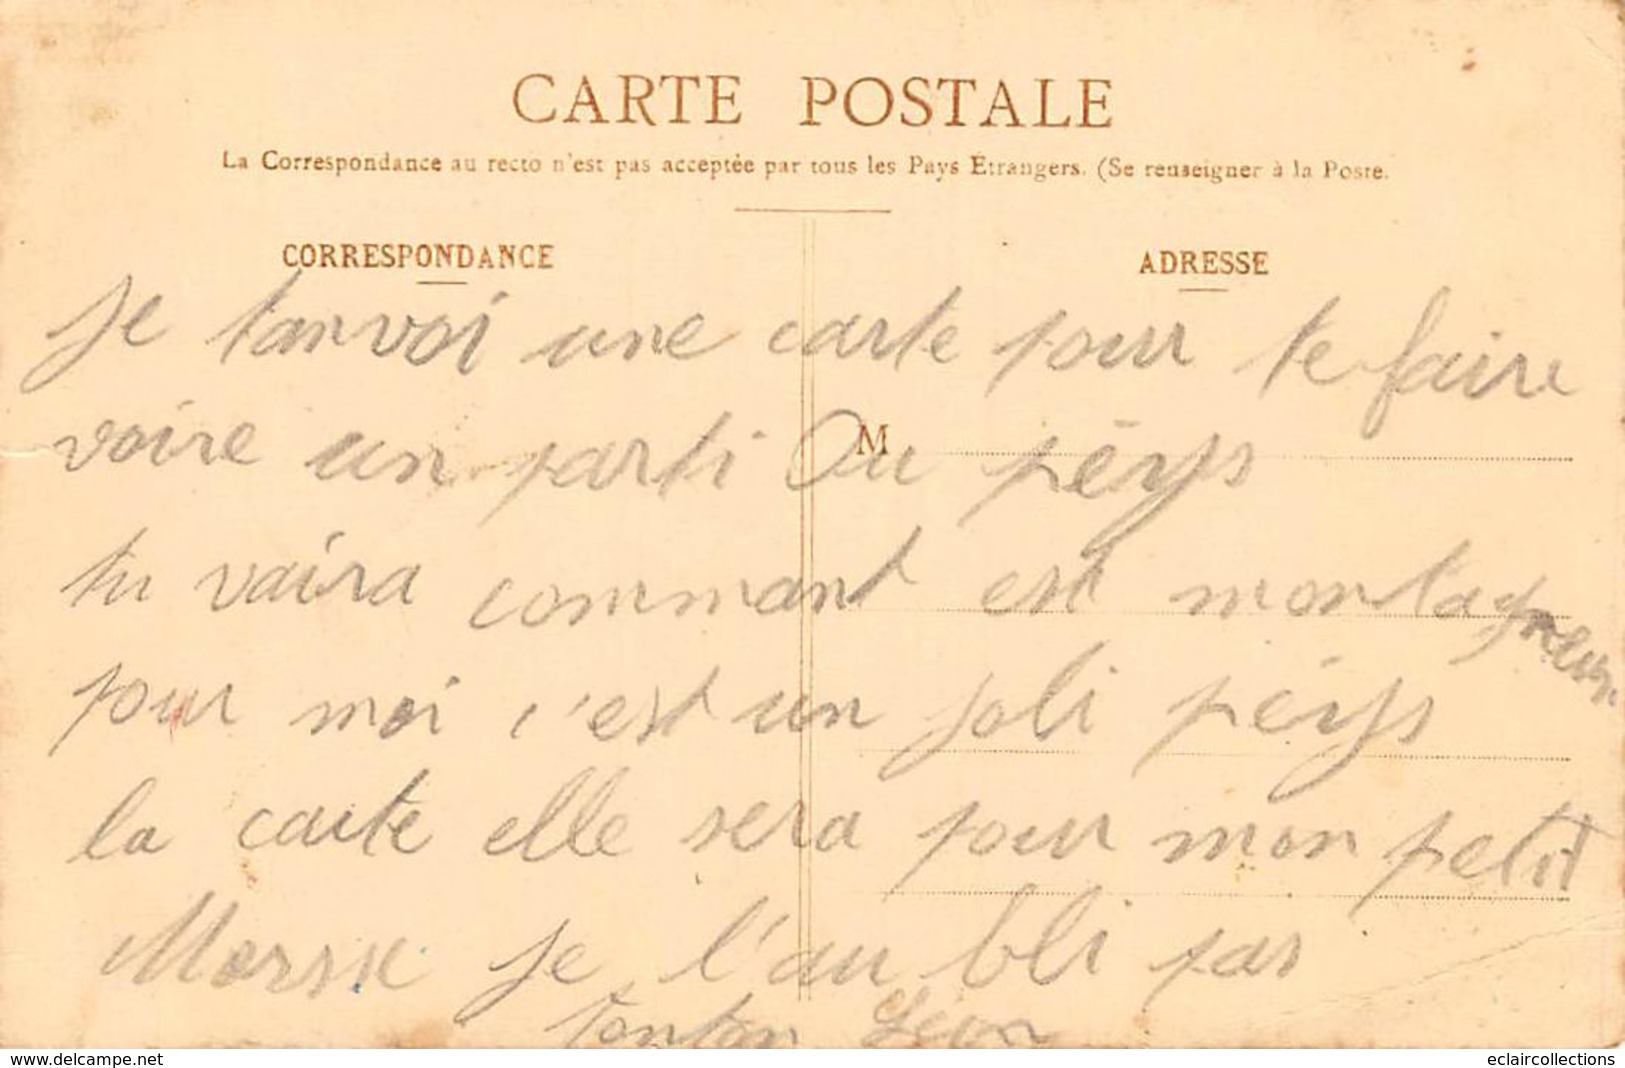 CARTE POSTALE
La Correspondance au recto n'est pas acceptée par tous les Pays Étrangers. (Se renseigner à la Poste.
CORRESPONDANCE
ADRESSE
M
Je tanvoi une carte pour te faire
voire un parti Ou péys
tu vaira commant est montagneux
pour moi c'est un joli péys
la carte elle sera pour mon petit
je l'au bli pas
Tonton Léon
www.delcampe.net
eclaircollections